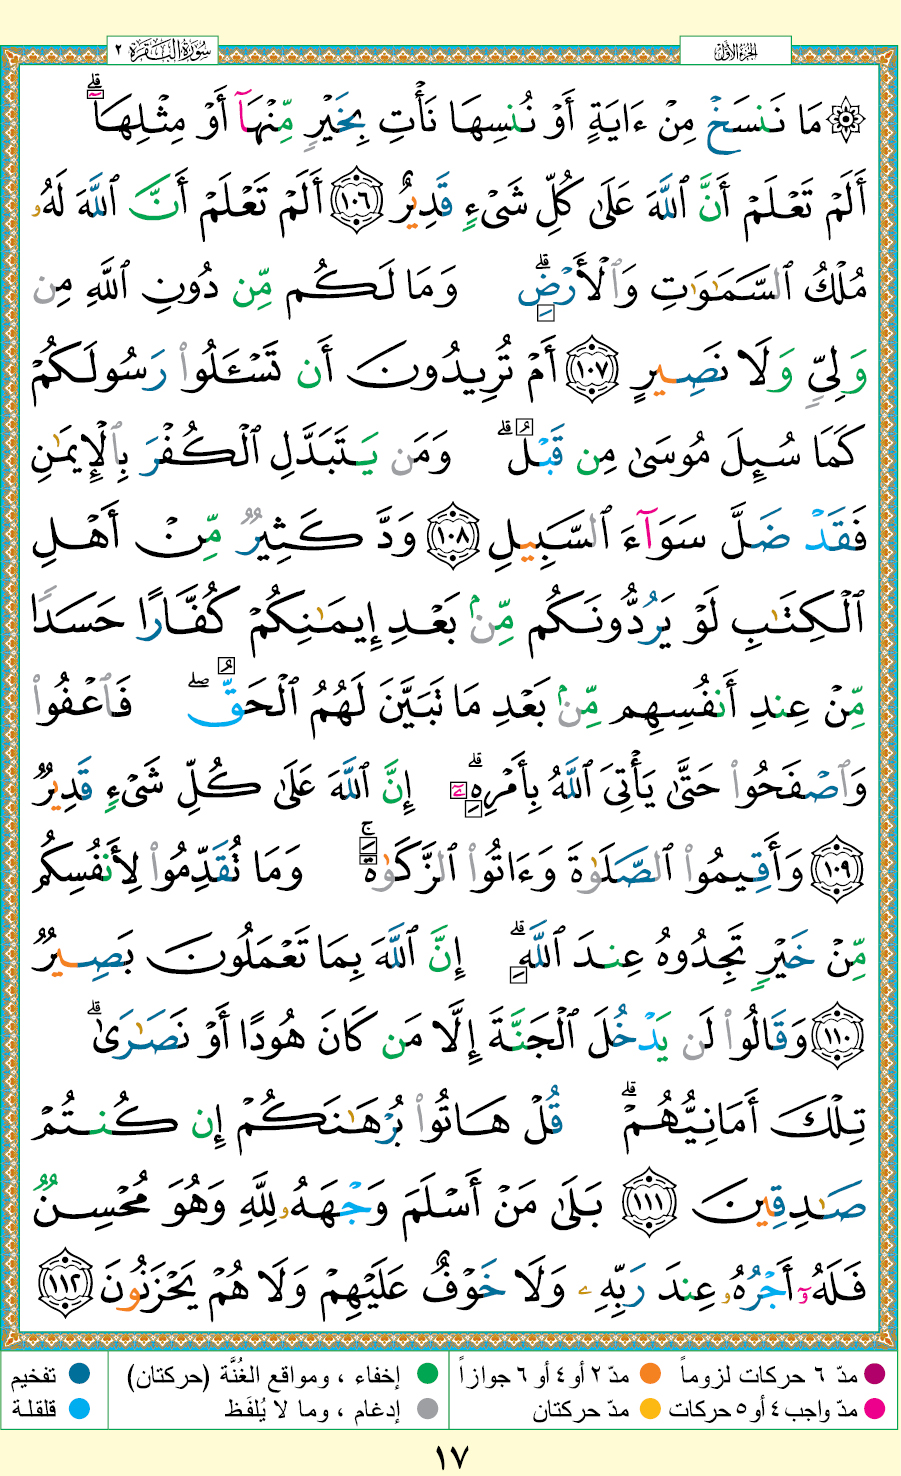 الجزء الأول
سورة البقرة ٢
۞ مَا نَنسَخْ مِنْ ءَايَةٍ أَوْ نُنسِهَا نَأْتِ بِخَيْرٍ مِّنْهَآ أَوْ مِثْلِهَآ ۗ
أَلَمْ تَعْلَمْ أَنَّ ٱللَّهَ عَلَىٰ كُلِّ شَىْءٍ قَدِيرٌ ١٠٦ أَلَمْ تَعْلَمْ أَنَّ ٱللَّهَ لَهُۥ
مُلْكُ ٱلسَّمَـٰوَٰتِ وَٱلْأَرْضِ ۗ وَمَا لَكُم مِّن دُونِ ٱللَّهِ مِن
وَلِىٍّ وَلَا نَصِيرٍ ١٠٧ أَمْ تُرِيدُونَ أَن تَسْـَٔلُوا۟ رَسُولَكُمْ
كَمَا سُئِلَ مُوسَىٰ مِن قَبْلُ ۗ وَمَن يَتَبَدَّلِ ٱلْكُفْرَ بِٱلْإِيمَـٰنِ
فَقَدْ ضَلَّ سَوَآءَ ٱلسَّبِيلِ ١٠٨ وَدَّ كَثِيرٌ مِّنْ أَهْلِ
ٱلْكِتَـٰبِ لَوْ يَرُدُّونَكُم مِّنۢ بَعْدِ إِيمَـٰنِكُمْ كُفَّارًا حَسَدًا
مِّنْ عِندِ أَنفُسِهِم مِّنۢ بَعْدِ مَا تَبَيَّنَ لَهُمُ ٱلْحَقُّ ۖ فَٱعْفُوا۟
وَٱصْفَحُوا۟ حَتَّىٰ يَأْتِىَ ٱللَّهُ بِأَمْرِهِۦٓ ۗ إِنَّ ٱللَّهَ عَلَىٰ كُلِّ شَىْءٍ قَدِيرٌ
١٠٩ وَأَقِيمُوا۟ ٱلصَّلَوٰةَ وَءَاتُوا۟ ٱلزَّكَوٰةَ ۚ وَمَا تُقَدِّمُوا۟ لِأَنفُسِكُم
مِّنْ خَيْرٍ تَجِدُوهُ عِندَ ٱللَّهِ ۗ إِنَّ ٱللَّهَ بِمَا تَعْمَلُونَ بَصِيرٌ
١١٠ وَقَالُوا۟ لَن يَدْخُلَ ٱلْجَنَّةَ إِلَّا مَن كَانَ هُودًا أَوْ نَصَـٰرَىٰ ۗ
تِلْكَ أَمَانِيُّهُمْ ۗ قُلْ هَاتُوا۟ بُرْهَـٰنَكُمْ إِن كُنتُمْ
صَـٰدِقِينَ ١١١ بَلَىٰ مَنْ أَسْلَمَ وَجْهَهُۥ لِلَّهِ وَهُوَ مُحْسِنٌ
فَلَهُۥٓ أَجْرُهُۥ عِندَ رَبِّهِۦ وَلَا خَوْفٌ عَلَيْهِمْ وَلَا هُمْ يَحْزَنُونَ ١١٢
مدّ ٦ حركات لزوماً مدّ ٢ أو ٤ أو ٦ جوازاً إخفاء ، ومواقع الغُنَّة (حركتان) تفخيم
مدّ واجب ٤ أو ٥ حركات مدّ حركتان إدغام ، وما لا يُلفَظ قلقلة
١٧